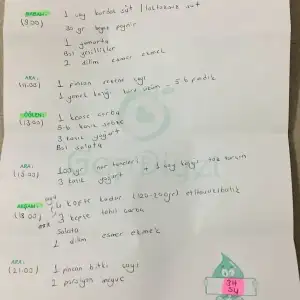 SABAH:
(8.00)
1 çay bardak süt / laktozsuz süt
30 gr beyaz peynir
1 yumurta
Bol yeşillikler
2 dilim esmer ekmek
ARA:
(11.00)
1 fincan rezene çayı
1 yemek kaşığı kuru üzüm - 5 b fındık
ÖĞLEN:
(13.00)
1 kepçe çorba
5-6 kaşık sebze
3 kaşık yoğurt
Bol salata
ARA:
(15.00)
100 gr nar taneleri + 1 tatlı kaşığı
3 kaşık yoğurt
AKŞAM:
(18.00)
4 köfte kadar (120-240gr) et/tavuk/balık
3 kepçe tahıl çorba
Salata
1 dilim esmer ekmek
ARA:
(21.00)
1 fincan bitki çayı
2 porsiyon meyve
3H
SU